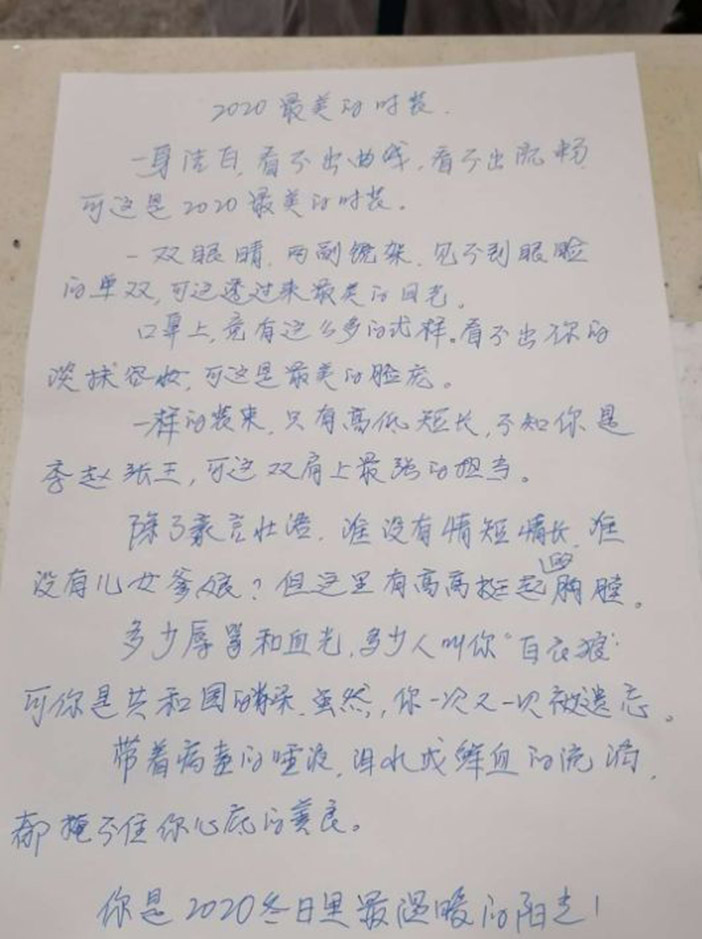 2020最美的时装.
一身洁白,看不出曲线,看不出流畅,
可这是2020最美的时装。
一双眼睛,两副镜架,见不到眼脸
的单双,可这透过来最美的目光。
口罩上,竟有这么多的式样。看不出你的
淡抹容妆,可这是最美的脸庞。
一样的装束,只有高低短长,不知你是
李赵张王,可这双肩上最强的担当。
除了豪言壮语,谁没有情短情长,谁
没有儿女爹娘?但这里有高高挺起的胸膛。
多少辱骂和血光,多少人叫你“白衣狼”
可你是共和国的脊梁.虽然,你一次又一次被遗忘。
带着病毒的唾液,泪水或鲜血的流淌,
都掩不住你心底的善良。
你是2020冬日里最温暖的阳光!